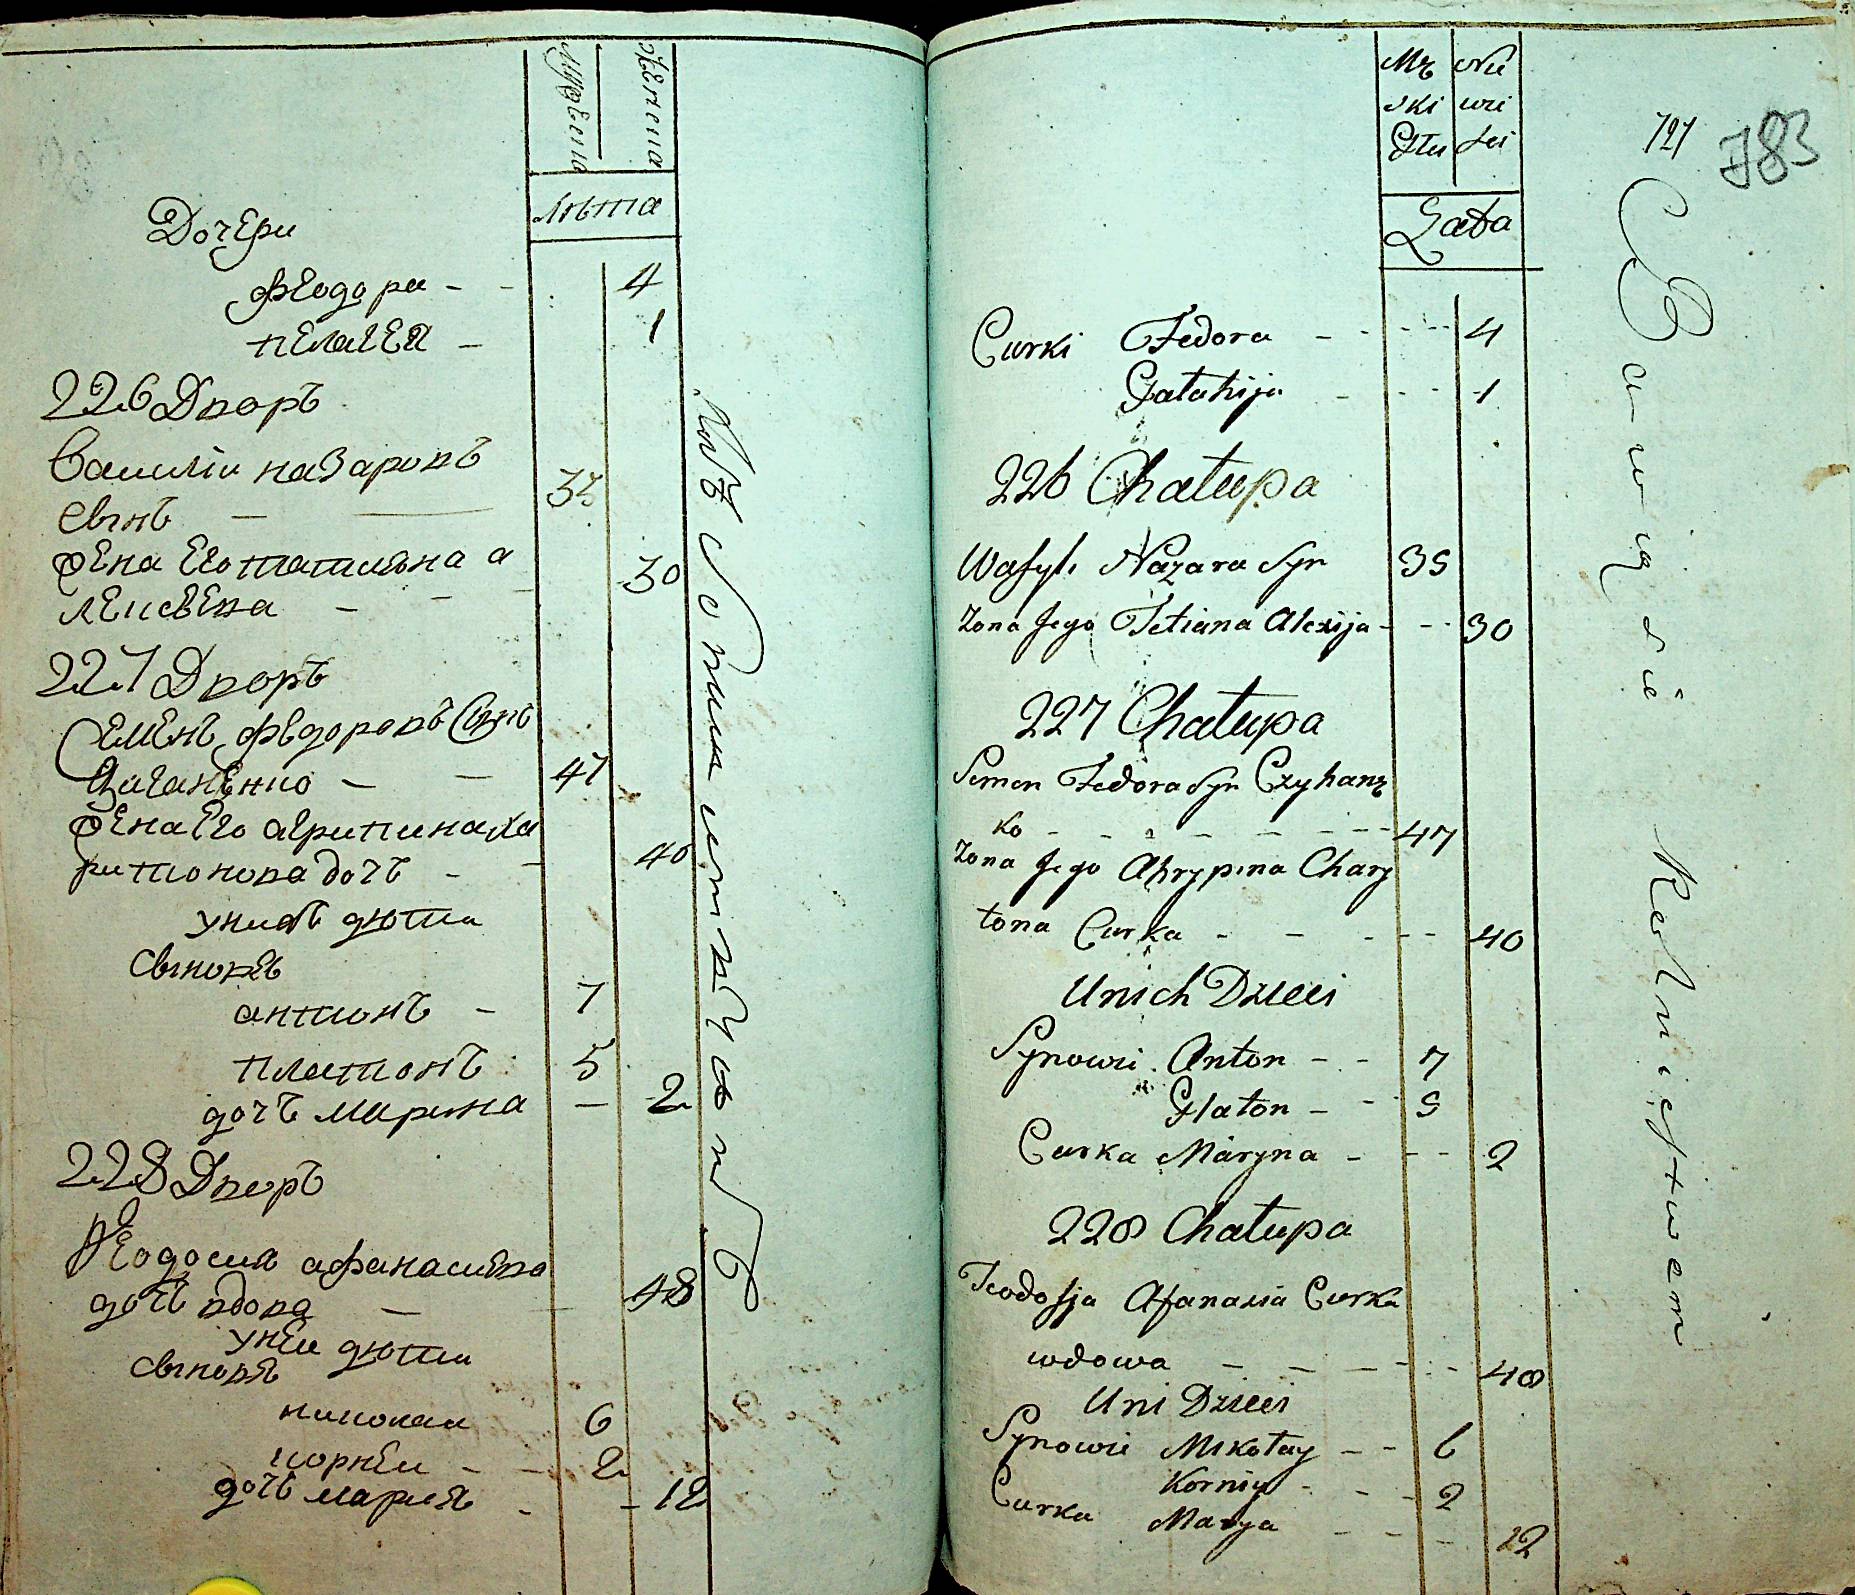 Мужеска
Женска
Лѣта
Дочери
Феодора - - 4
Пелагея - 1
226 Дворъ
Василіи Назаровъ
сынъ - — 35
Жена Его Татияна А
леисѣева - - - 30
227 Дворъ
Семенъ Федоровъ Сынъ
Цыганенко - — 47
Жена Его Агрипина Ха
ритонова дочь - - 40
у них дѣти
Сыновя
Антонъ - 7
Платонъ 5
дочь Марина - 2
228 Дворъ
Феодосия Афанасиева
дочь вдова — 48
у неи дѣти
Сыновя
Николаи 6
Корнеи - - 2
дочь Мария - - 12
Mę Nie
ski wie
Płu sci
Lata
721
783
Curki Fedora - - - - 4
Palahija - - - 1
226 Chałupa
Wasyl. Nazara Syn 35
Zona Jego Tetiana Alexija - - - 30
227 Chałupa
Semen Fedora Syn Czyhanę
ko - - - - - - - - 47
Zona Jego Ahrypina Chary
tona Curka - - - - - 40
Unich Dzieci
Synowie Anton - - 7
Płaton - - 5
Curka Maryna - - - 2
228 Chałupa
Teodosja Afanasia Curka
wdowa - - - - - - 48
Uni Dzieci
Synowie Mikołay - - 6
Korniy - - - 2
Curka Marya - - - 12